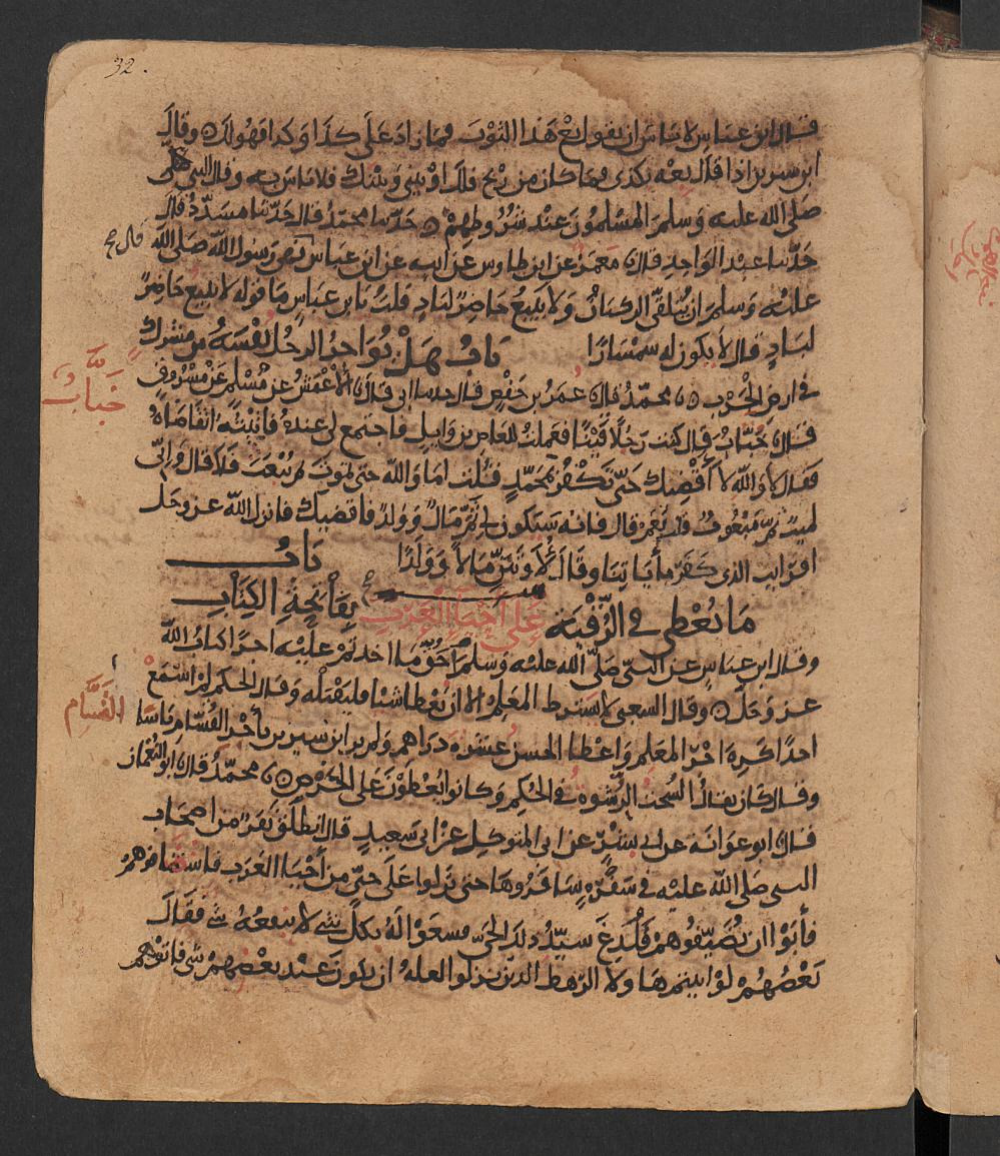 32.
قال ابن عباس لا باس ان يقول بع هذا الثوب فما زاد على كذا وكذا فهو لك وقال
ابن سيرين اذا قال بعه بكذى فما كان من ربح فلك او بيني وبينك فلا باس به وقال النبي
صلى الله عليه وسلم المسلمون عند شروطهم حدثنا محمد قال حدثنا مسدد قال
حدثنا عبد الواحد قال معمر عن ابن طاوس عن ابيه عن ابن عباس نهى رسول الله صلى الله
عليه وسلم ان يتلقى الركبان ولا يبيع حاضر لباد قلت يابن عباس ما قوله لا يبيع حاضر
لباد قال لا يكون له سمسارا باب هل يواجر الرجل نفسه من مشرك
في ارض الحرب محمد قال عمر بن حفص قال حدثنا ابي قال الاعمش عن مسلم عن مسروق
خباب
قال خباب قال كنت رجلا قينا فعملت للعاص بن وايل فاجتمع لي عنده فاتيته اتقاضاه
فقال لا والله لا اقضيك حتى تكفر بمحمد فقلت اما والله حتى تموت ثم تبعث فلا قال واني
لميت ثم مبعوث قلت نعم قال فانه سيكون لي ثم مال وولد فاقضيك فانزل الله عز وجل
افرايت الذي كفر باياتنا وقال لاوتين مالا وولدا باب
ما يعطى في الرقية على احياء العرب بفاتحة الكتاب
وقال ابن عباس عن النبي صلى الله عليه وسلم احق ما اخذتم عليه اجرا كتاب الله
عز وجل وقال الشعبي لا يشترط المعلم الا ان يعطا شيا فليقبله وقال الحكم لم اسمع
القسام
احدا كره اجر المعلم واعطا الحسن عشره دراهم ولم ير ابن سيرين باجر القسام باسا
وقال كان يقال السحت الرشوه في الحكم وكانوا يعطون على الخرص محمد قال ابو النعمان
قال ابو عوانة عن ابي بشر عن ابي المتوكل عن ابي سعيد قال انطلق نفر من اصحاب
النبي صلى الله عليه في سفره سافروها حتى نزلوا على حي من احياء العرب فاستضافوهم
فأبوا ان يضيفوهم فلدغ سيد ذلك الحي فسعوا له بكل شي لا ينفعه شي فقال
بعضهم لو اتيتم هاولا الرهط الذين نزلوا لعله ان يكون عند بعضهم شي فاتوهم